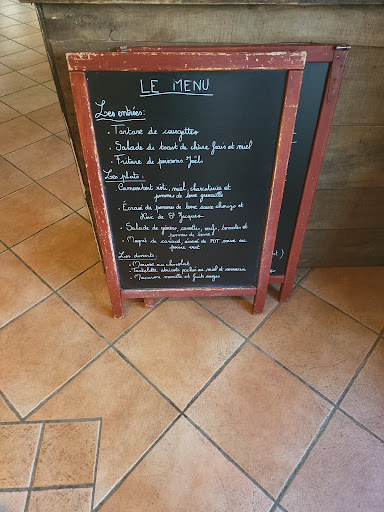 LE MENU
Les entrées:
• Tartare de courgettes
• Salade de toast de chèvre frais et miel
• Friture de poissons
Les plats:
Camembert rôti, miel, charcuterie et
pommes de terre grenaille
• Écrasé de pommes de terre sauce chorizo et
noix de St Jacques
• Salade de gésiers, carottes, oeuf, tomates et
pommes de terre
• Magret de canard, écrasé de PDT sauce au
poivre vert
Les desserts:
• Mousse au chocolat
• Tartelette abricots pochés au miel et romarin
• Macaron menthe et fruits rouges